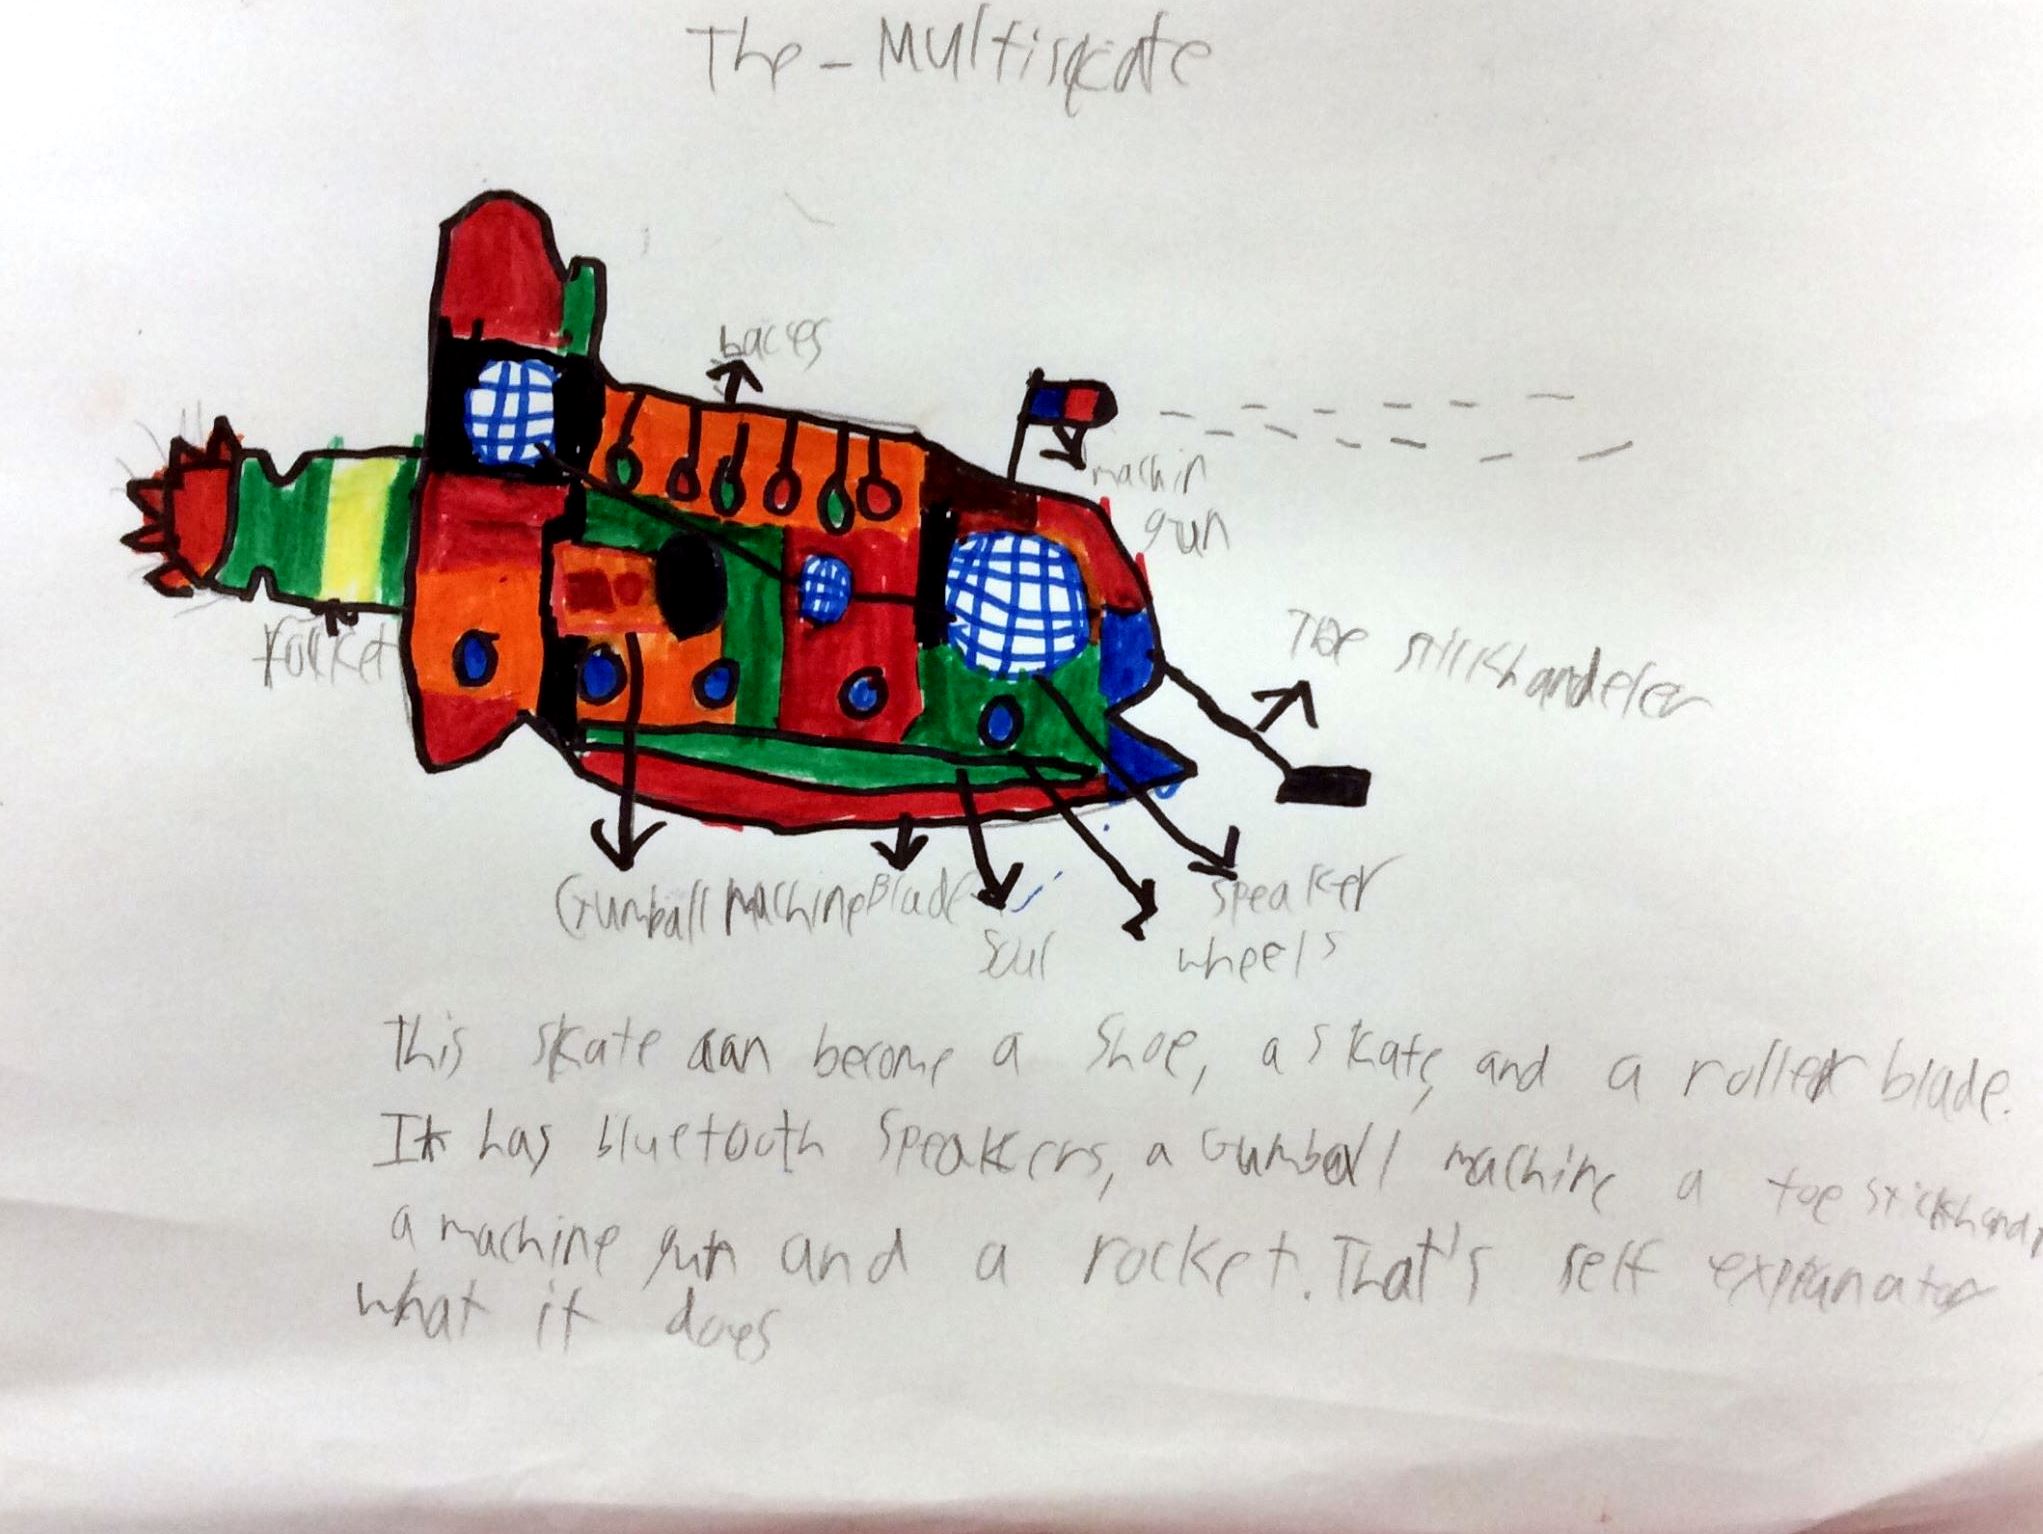 The - Multiskate
bacces
machin
gun
rocket
Toe stickhandeler
Gumball machine Blade
speaker
soul
wheels
This skate can become a shoe, a skate, and a roller blade.
It has bluetooth speakers, a Gumball machine a toe stickhand
a machine gun and a rocket. That's self explanator
what it does